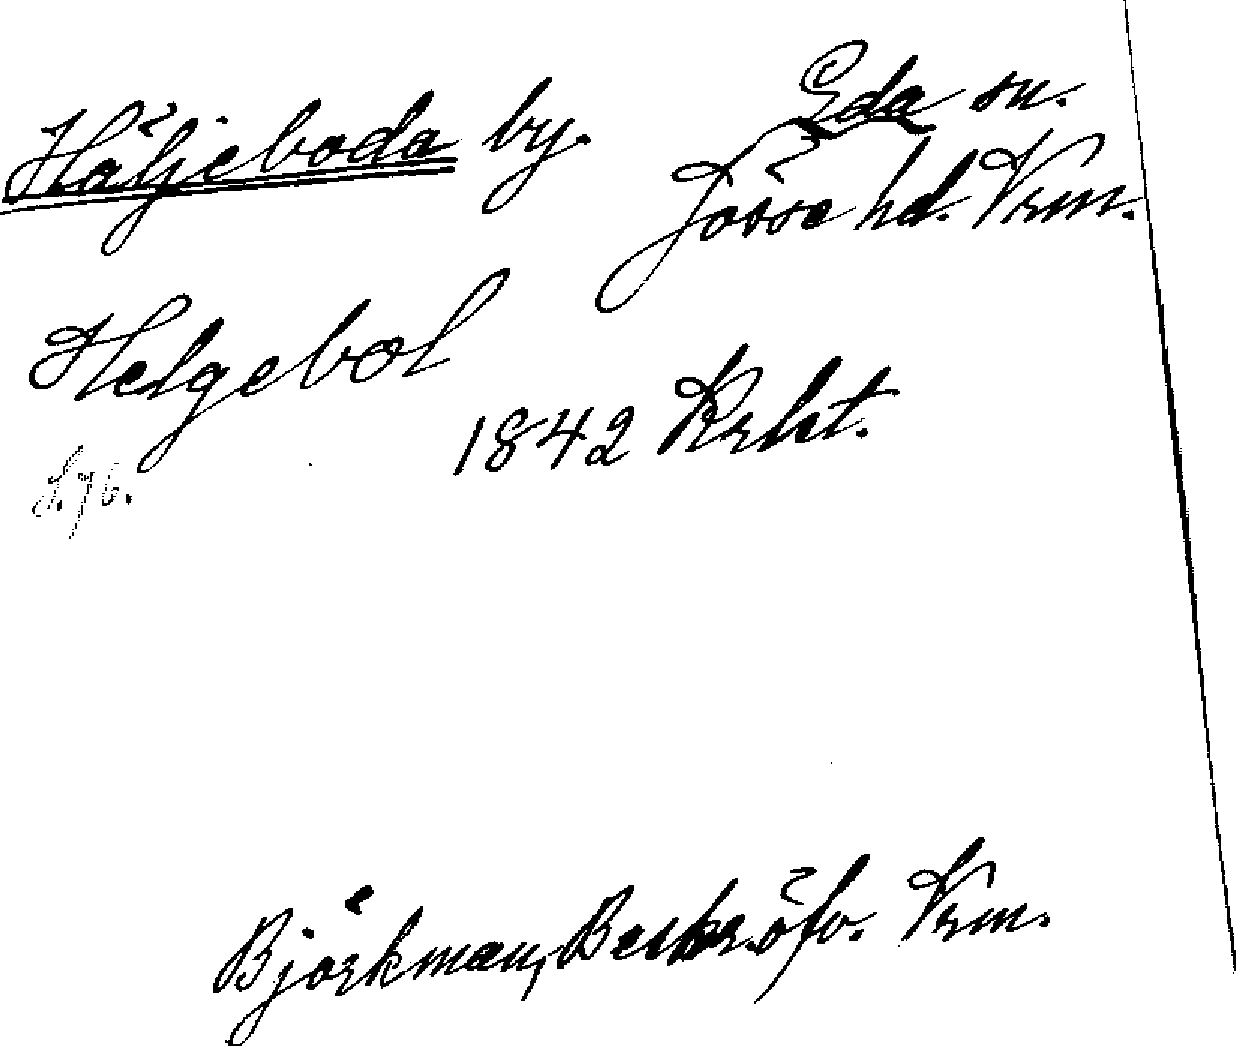 Häljeboda by. Eda sn.
Jösse hd. Vrm.
Helgebol
1842 Krht.
S. 76.
Björkman, Beskr. öfv. Vrm.